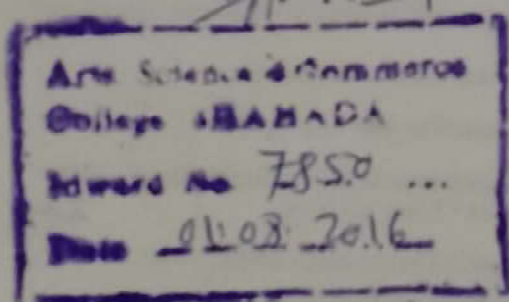 Arts Science & Commerce
College RAHADA
Inward No 7850 ...
Date 01.08.2016